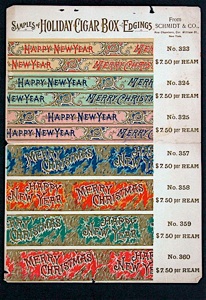 SAMPLES of HOLIDAY CIGAR BOX EDGINGS
From
SCHMIDT & CO.
New York
HAPPY NEW YEAR MERRY CHRISTMAS
No. 323
$7.50 per REAM
HAPPY NEW YEAR MERRY CHRISTMAS
No. 324
HAPPY NEW YEAR MERRY CHRISTMAS
$7.50 per REAM
HAPPY NEW YEAR MERRY CHRISTMAS
No. 325
HAPPY NEW YEAR MERRY CHRISTMAS
$7.50 per REAM
MERRY CHRISTMAS HAPPY NEW YEAR
No. 357
$7.50 per REAM
HAPPY NEW YEAR MERRY CHRISTMAS
No. 358
$7.50 per REAM
MERRY CHRISTMAS HAPPY NEW YEAR
No. 359
$7.50 per REAM
HAPPY NEW YEAR MERRY CHRISTMAS
No. 360
$7.50 per REAM